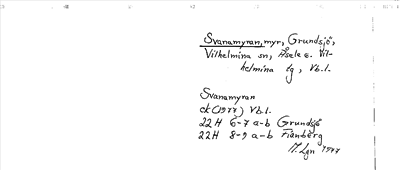 Svanamyran, myr, Grundsjö,
Vilhelmina sn, Åsele o. Vil-
helmina lg, Vb.l.
Svanamyran
ek (1977) Vb.l.
22H 6-7 a-b Grundsjö
22H 8-9 a-b Flånberg
M. Lgn 1977